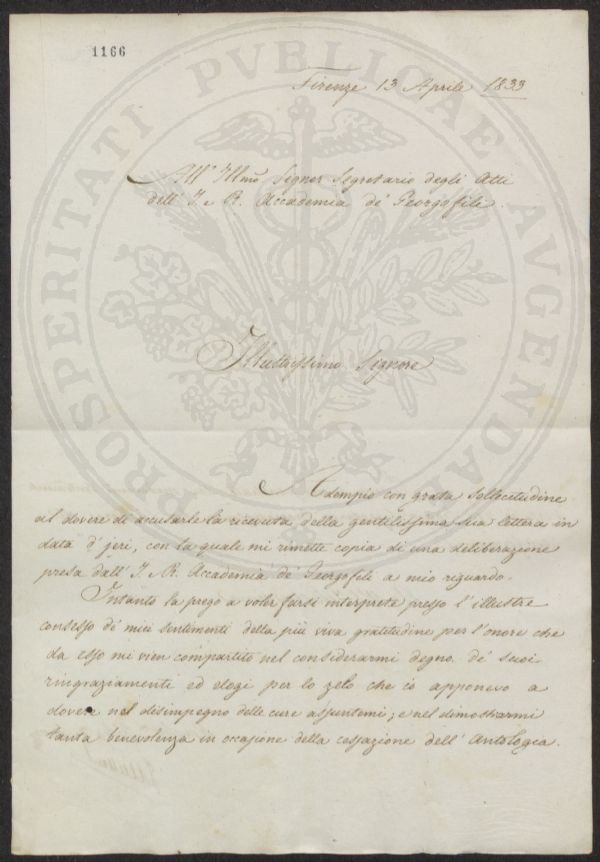 1166
Firenze 13 Aprile 1833
All' Illmo Signor Segretario degli Atti
dell' I. e R. Accademia de' Georgofili.
Illustrissimo Signore
Adempio con grata sollecitudine
al dovere di accusarle la ricevuta della gentilissima sua lettera in
data d' jeri, con la quale mi rimette copia di una deliberazione
presa dall' I. e R. Accademia de' Georgofili a mio riguardo.
Intanto la prego a voler farsi interprete presso l' illustre
consesso de' miei sentimenti della più viva gratitudine per l' onore che
da esso mi vien compartito nel considerarmi degno de' suoi
ringraziamenti ed elogi per lo zelo che io apponevo a
dovere nel disimpegno delle cure assuntemi; e nel dimostrarmi
tanta benevolenza in occasione della cessazione dell' Antologia.
PROSPERITATI PVBLICAE AVGENDAE